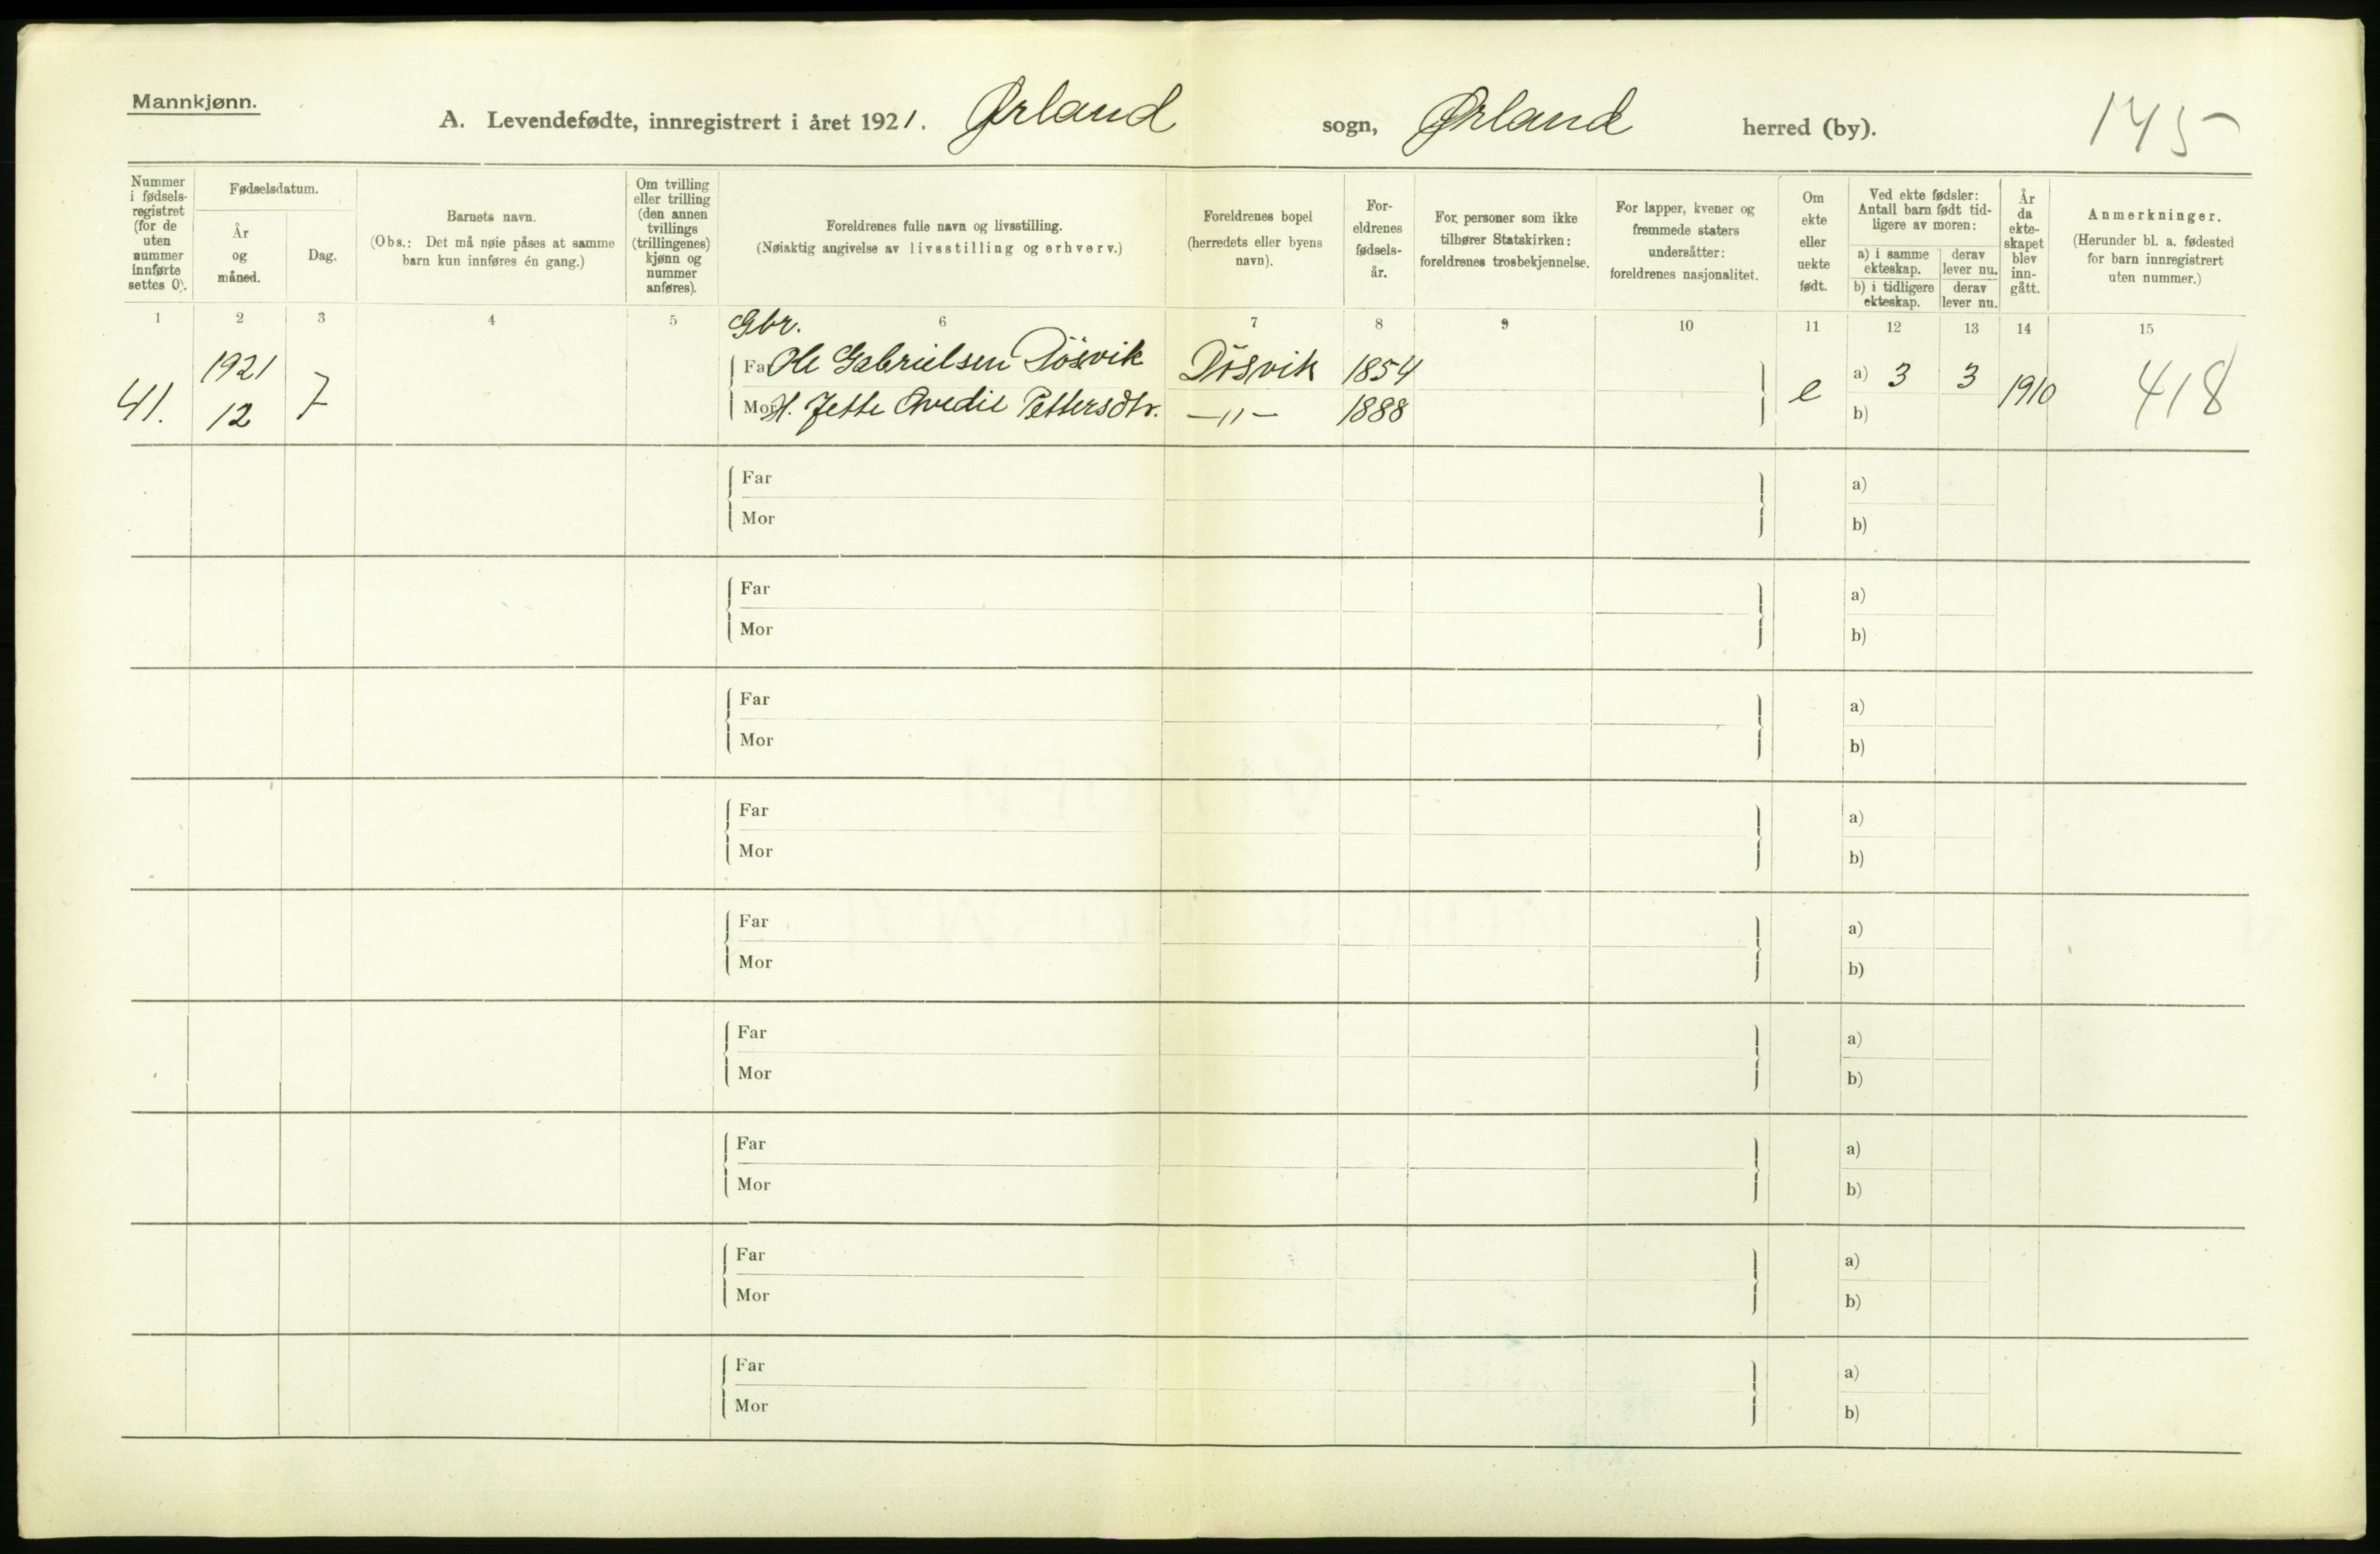 Mannkjønn.
A. Levendefødte, innregistrert i året 1921. Ørland sogn, Ørland herred (by). 145
Nummer i fødsels- registret (for de uten nummer innførte settes 0).
Fødselsdatum.
År og måned.
Dag.
Barnets navn.
(Obs.: Det må nøie påses at samme barn kun innføres én gang.)
Om tvilling eller trilling (den annen tvillings (trillingenes) kjønn og nummer anføres).
Foreldrenes fulle navn og livsstilling.
(Nøiaktig angivelse av livsstilling og erhverv.)
Foreldrenes bopel (herredets eller byens navn).
For- eldrenes fødsels- år.
For personer som ikke tilhører Statskirken: foreldrenes trosbekjennelse.
For lapper, kvener og fremmede staters undersåtter: foreldrenes nasjonalitet.
Om ekte eller uekte født.
Ved ekte fødsler: Antall barn født tid- ligere av moren:
a) i samme ekteskap.
derav lever nu.
b) i tidligere ekteskap.
derav lever nu.
År da ekte- skapet blev inn- gått.
Anmerkninger.
(Herunder bl. a. fødested for barn innregistrert uten nummer.)
1 2 3 4 5 6 7 8 9 10 11 12 13 14 15
Gbr.
41. 1921 12 7
Far Ole Gabrielsen Dösvik Dösvik 1854 e a) 3 3 1910 418
Mor H. Jette Ovedie Pettersdtr. —"— 1888 b)
Far a)
Mor b)
Far a)
Mor b)
Far a)
Mor b)
Far a)
Mor b)
Far a)
Mor b)
Far a)
Mor b)
Far a)
Mor b)
Far a)
Mor b)
Far a)
Mor b)